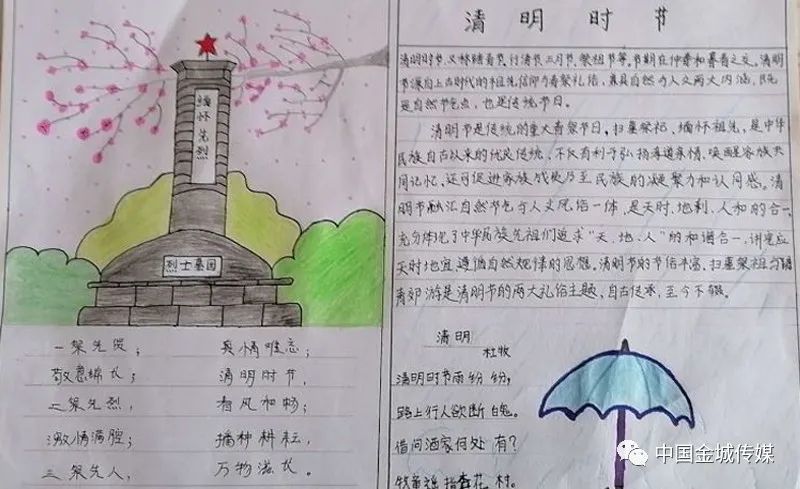 缅怀先烈
烈士墓园
一祭先贤; 真情难忘;
敬意绵长; 清明时节,
二祭先烈, 春风和畅;
激情满腔; 播种耕耘,
三祭先人, 万物滋长。
清明时节
清明时节,又称踏青节、行清节、三月节、祭祖节等,节期在仲春和暮春之交。清明
节源自上古时代的祖先信仰与春祭礼俗,兼具自然与人文两大内涵,既
是自然节气点,也是传统节日。
清明节是传统的重大春祭节日。扫墓祭祀、缅怀祖先,是中华
民族自古以来的优良传统,不仅有利于弘扬孝道亲情、唤醒家族共
同记忆,还可促进家族成员乃至民族的凝聚力和认同感。清
明节融汇自然节气与人文风俗一体,是天时、地利、人和的合一
充分体现了中华民族先祖们追求“天、地、人”的和谐合一,讲究应
天时地宜遵循自然规律的思想。清明节的节俗丰富,扫墓祭祖与踏
青郊游是清明节的两大礼俗主题,自古传承,至今不辍。
清明
杜牧
清明时节雨纷纷,
路上行人欲断魂。
借问酒家何处有?
牧童遥指杏花村。
中国金城传媒